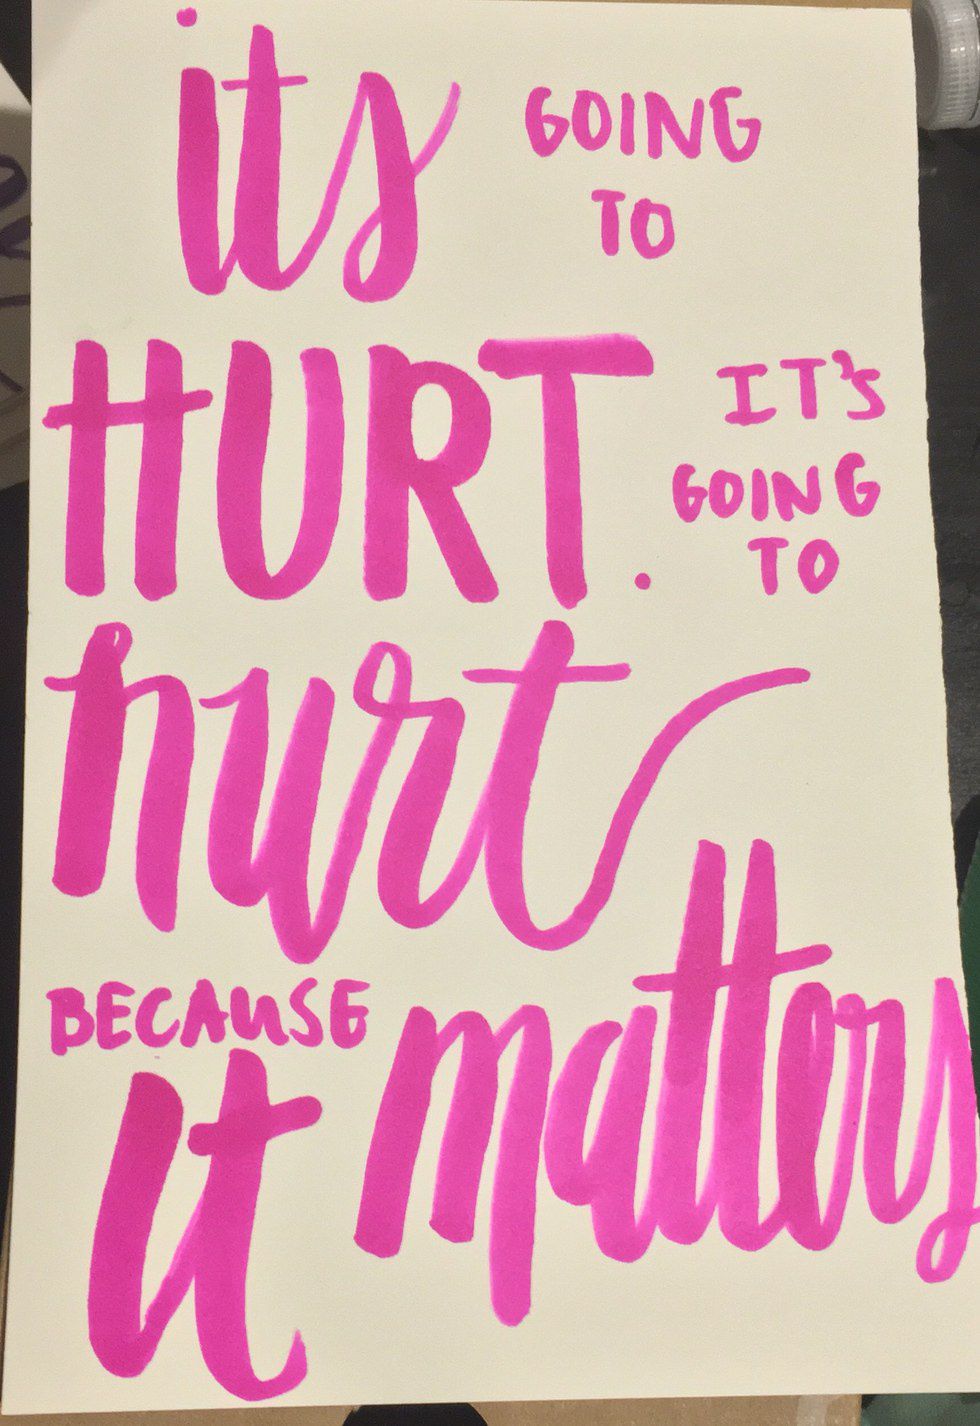 its GOING
TO
HURT. IT'S
GOING
TO
hurt
BECAUSE matters
It